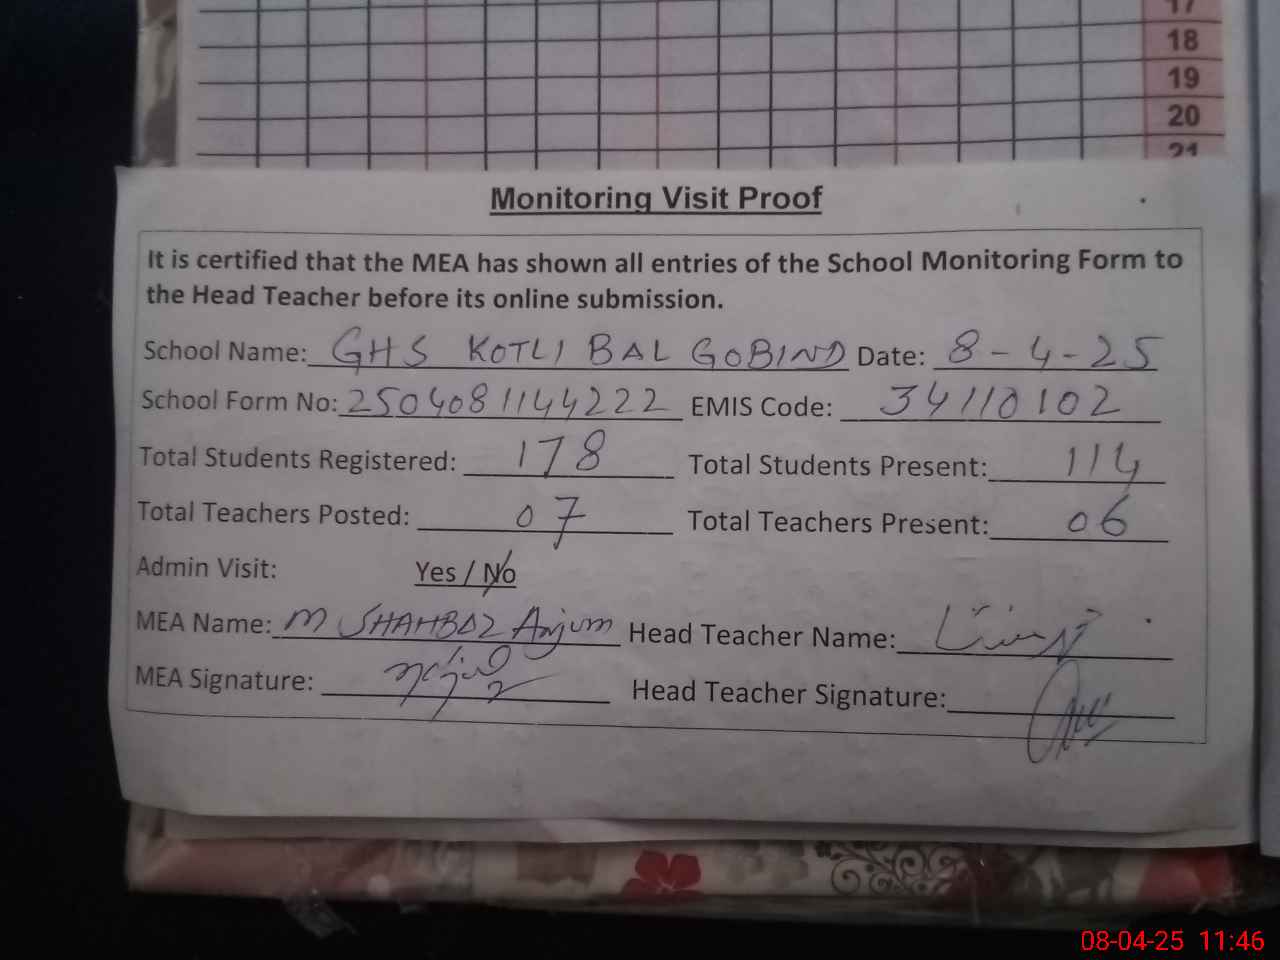 17
18
19
20
21
Monitoring Visit Proof
It is certified that the MEA has shown all entries of the School Monitoring Form to
the Head Teacher before its online submission.
School Name: GHS KOTLI BAL GOBIND Date: 8-4-25
School Form No: 2504081144222 EMIS Code: 34110102
Total Students Registered: 178 Total Students Present: 114
Total Teachers Posted: 07 Total Teachers Present: 06
Admin Visit: Yes / No
MEA Name: M SHAHBAZ Anjum Head Teacher Name:
MEA Signature: Head Teacher Signature:
08-04-25 11:46